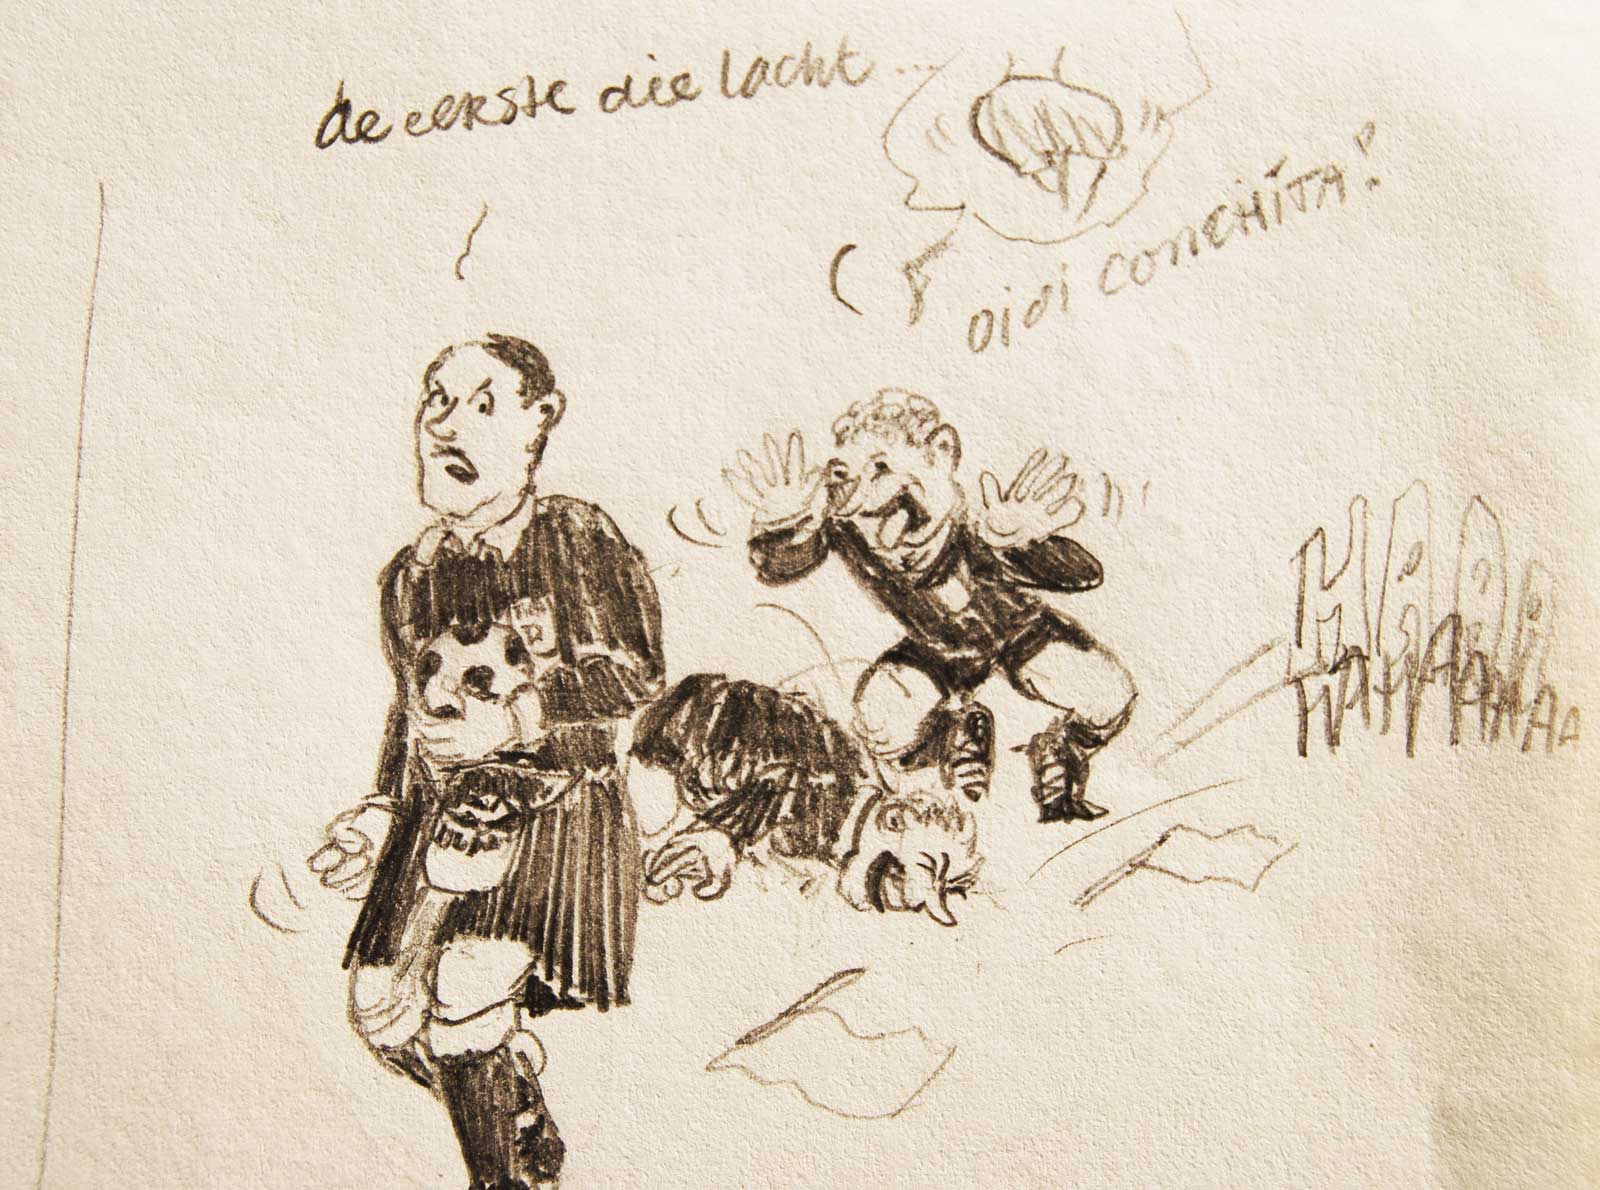 de eerste die lacht ...
oioi conchita!
HAHAHAHA